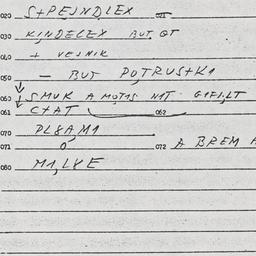 020 S+PEJNDLEX 021
030 KINDELEX BUT OT
040 + VEJNIK
050 — BUT POTRUS+K1
060 SMUK A MOTIS N1T GEFILT
061 C+AT 062
070 DL8AM1
071 O 072 A BREM A
080 M1,L8E